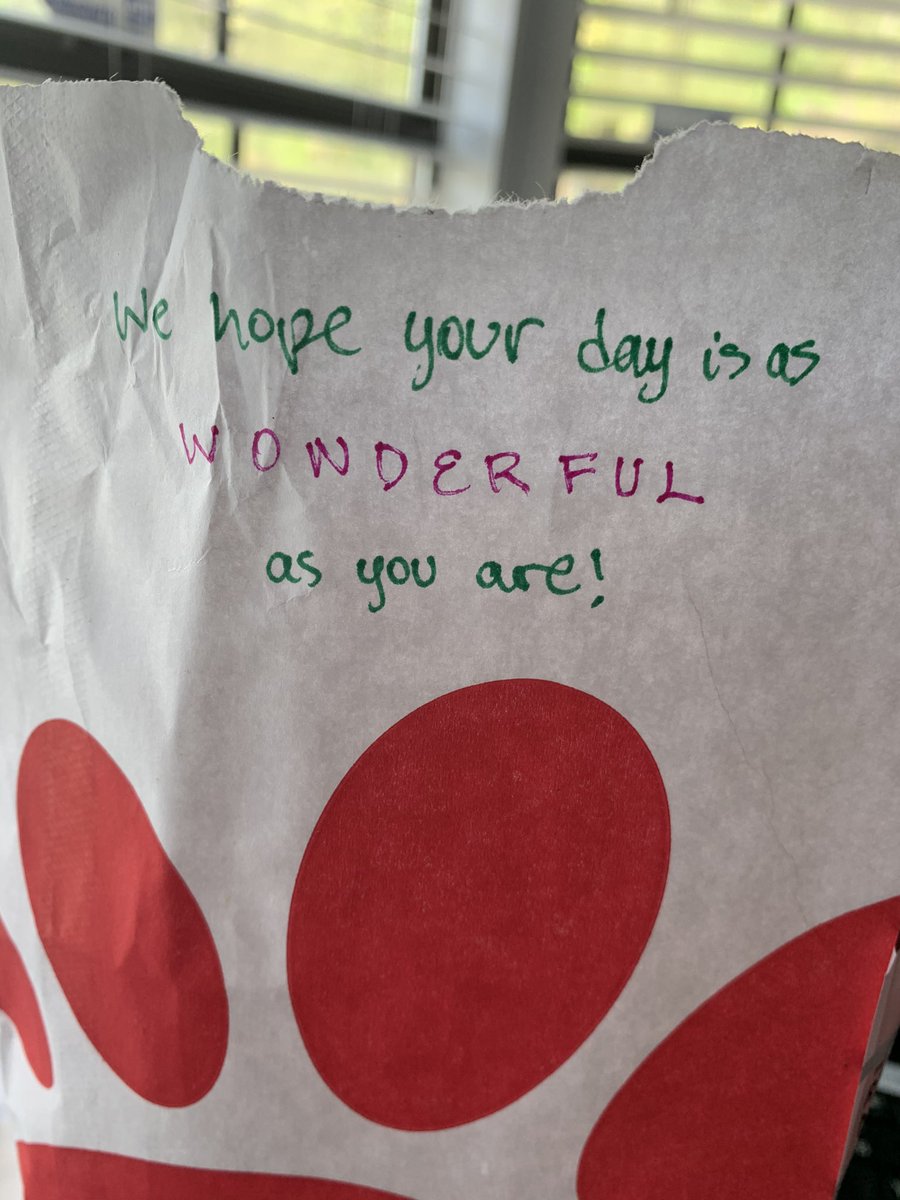 We hope your day is as
WONDERFUL
as you are!